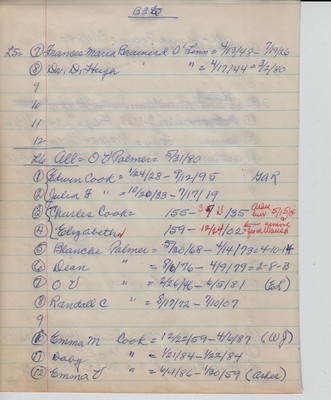 B 320
L5= ① Frances Maria Brainerd O'Linn= 4/13/48- 7/19/26
⑧ Dr. D. Hugh " " = 4/17/44= 3/2/80
9
10
11
12
L6 All= O V Palmer= 5/31/80
① Edwin Cook= 1/24/28- 7/12/95 GaR
② Julia F " = 10/20/33- 7/17/19
③ Charles Cook= 155- 11/35 5/15/35
④ Elizabeth 159- 12/24/01
⑤ Blanche Palmer= 5/20/68- 4/14/73=4-10-14
⑥ Dean " = 8/6/76- 4/9/79=2-8-3
⑦ O V " = 2/26/46- 6/5/02
⑧ Randall C " = 8/17/72- 7/10/07
9
Emma M Cook= 12/22/59- 4/6/87 (WJ)
⑪ Baby " = 1/21/84- 1/22/84
⑫ Emma V " = 4/4/86- 1/30/59 (ashes)